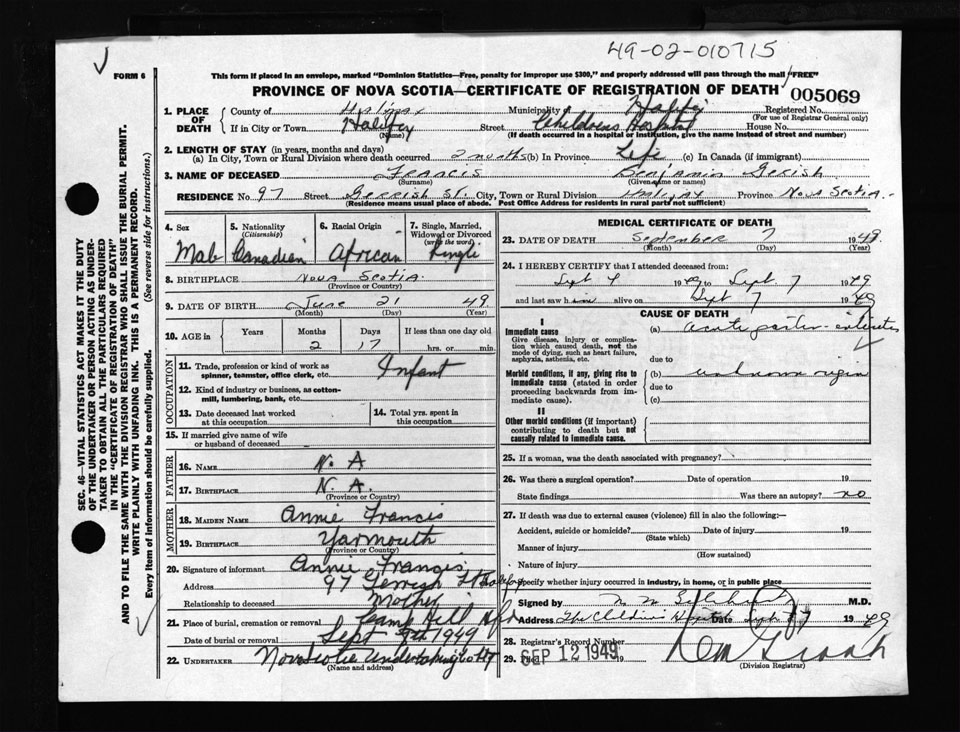 49-02-010715
FORM 6
This form if placed in an envelope, marked "Dominion Statistics—Free, penalty for improper use $300," and properly addressed will pass through the mail "FREE"
PROVINCE OF NOVA SCOTIA—CERTIFICATE OF REGISTRATION OF DEATH 005069
1. PLACE OF DEATH
County of Halifax Municipality of Halifax Registered No.
(For use of Registrar General only)
If in City or Town Halifax Street Childrens Hospital House No.
(Name) (If death occurred in a hospital or institution, give the name instead of street and number)
2. LENGTH OF STAY (in years, months and days)
(a) In City, Town or Rural Division where death occurred 2 months (b) In Province Life (c) In Canada (if immigrant)
3. NAME OF DECEASED FRANCIS Benjamin Gerish
(Surname) (Given name or names)
RESIDENCE No 97 Street Gerrish St. City, Town or Rural Division Halifax Province Nova Scotia
(Residence means usual place of abode. Post Office Address for residents in rural parts not sufficient)
4. Sex Male
5. Nationality (Citizenship) Canadian
6. Racial Origin African
7. Single, Married, Widowed or Divorced (write the word) Single
8. BIRTHPLACE Nova Scotia.
(Province or Country)
9. DATE OF BIRTH June 21 49
(Month) (Day) (Year)
10. AGE in Years Months Days If less than one day old
2 17 hrs. or min.
OCCUPATION
11. Trade, profession or kind of work as spinner, teamster, office clerk, etc. Infant
12. Kind of industry or business, as cotton-mill, lumbering, bank, etc.
13. Date deceased last worked at this occupation
14. Total yrs. spent in this occupation
15. If married give name of wife or husband of deceased
FATHER
16. NAME N. A
17. BIRTHPLACE N. A.
(Province or Country)
MOTHER
18. MAIDEN NAME Annie Francis
19. BIRTHPLACE Yarmouth
(Province or Country)
20. Signature of informant Annie Francis
Address 97 Gerrish St Halifax
Relationship to deceased Mother
21. Place of burial, cremation or removal Camp Hill Hfx
Date of burial or removal Sept 9th 1949
22. UNDERTAKER Nova Scotia Undertaking Co Ltd
(Name and address)
MEDICAL CERTIFICATE OF DEATH
23. DATE OF DEATH September 7 1949.
(Month) (Day) (Year)
24. I HEREBY CERTIFY that I attended deceased from:
Sept 4 1949 to Sept. 7 1949
and last saw him alive on Sept 7 1949
CAUSE OF DEATH
I
Immediate cause
Give disease, injury or complication which caused death, not the mode of dying, such as heart failure, asphyxia, asthenia, etc.
(a) acute gastro-enteritis
due to
Morbid conditions, if any, giving rise to immediate cause (stated in order proceeding backwards from immediate cause).
(b) unknown origin
due to
(c)
II
Other morbid conditions (if important) contributing to death but not causally related to immediate cause.
25. If a woman, was the death associated with pregnancy?
26. Was there a surgical operation? Date of operation 19
State findings Was there an autopsy? no
27. If death was due to external causes (violence) fill in also the following:—
Accident, suicide or homicide? Date of injury 19
(State which)
Manner of injury
(How sustained)
Nature of injury
Specify whether injury occurred in industry, in home, or in public place
Signed by M.D.
Address The Children's Hospital Date Sept 7 1949
28. Registrar's Record Number
29. Filed SEP 12 1949 19
(Division Registrar)
SEC. 46—VITAL STATISTICS ACT MAKES IT THE DUTY
OF THE UNDERTAKER OR PERSON ACTING AS UNDER-
TAKER TO OBTAIN ALL THE PARTICULARS REQUIRED
IN THE "CERTIFICATE OF REGISTRATION OF DEATH"
AND TO FILE THE SAME WITH THE DIVISION REGISTRAR WHO SHALL ISSUE THE BURIAL PERMIT.
WRITE PLAINLY WITH UNFADING INK. THIS IS A PERMANENT RECORD.
Every item of information should be carefully supplied. (See reverse side for instructions.)